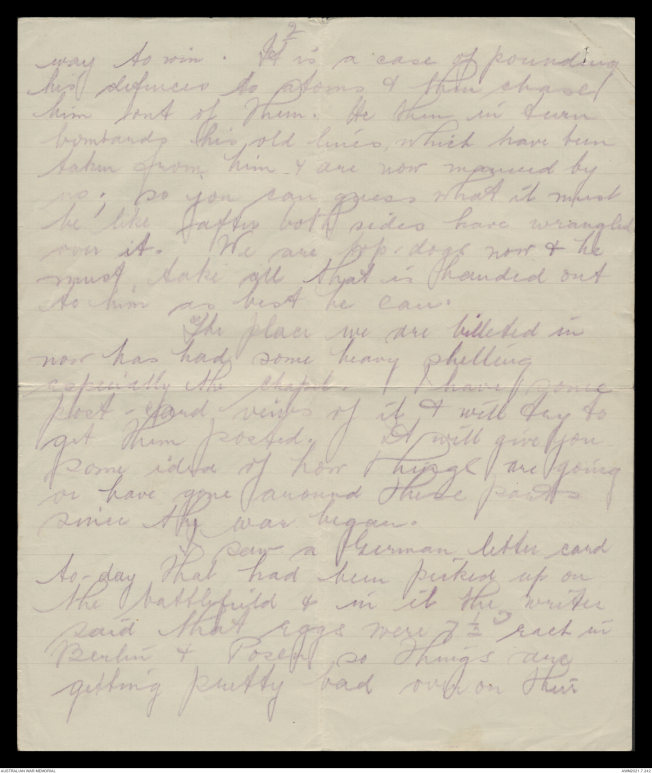 2
way to win. It is a case of pounding
his defences to atoms & then chase
him out of them. He then in turn
bombards his old lines, which have been
taken from him & are now manned by
us; so you can guess what it must
be like after both sides have wrangled
over it. We are top-dogs now & he
must take all that is handed out
to him as best he can.
The place we are billeted in
now has had some heavy shelling
especially the chapel. I have some
post-card views of it & will try to
get them posted. It will give you
some idea of how things are going
or have gone around these parts
since the war began.
I saw a German letter card
to-day that had been picked up on
the battlefield & in it the writer
said that eggs were 7½ each in
Berlin & Posen so things are
getting pretty bad over on their
AUSTRALIAN WAR MEMORIAL
AWM2021.7.242